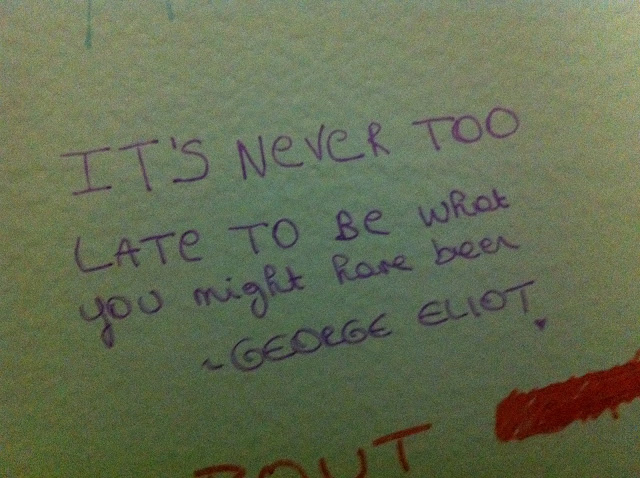 IT'S NEVER TOO
LATE TO BE what
you might have been
~GEORGE ELIOT